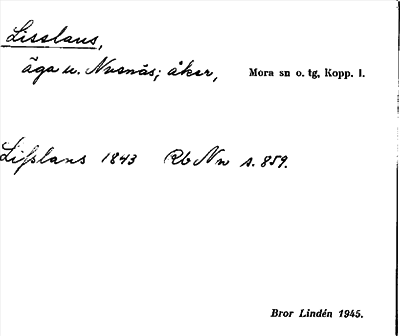 Lisslaus,
äga u. Nusnäs; åker, Mora sn o. tg, Kopp. l.
Lisslans 1843 Rb Nn s. 859.
Bror Lindén 1945.